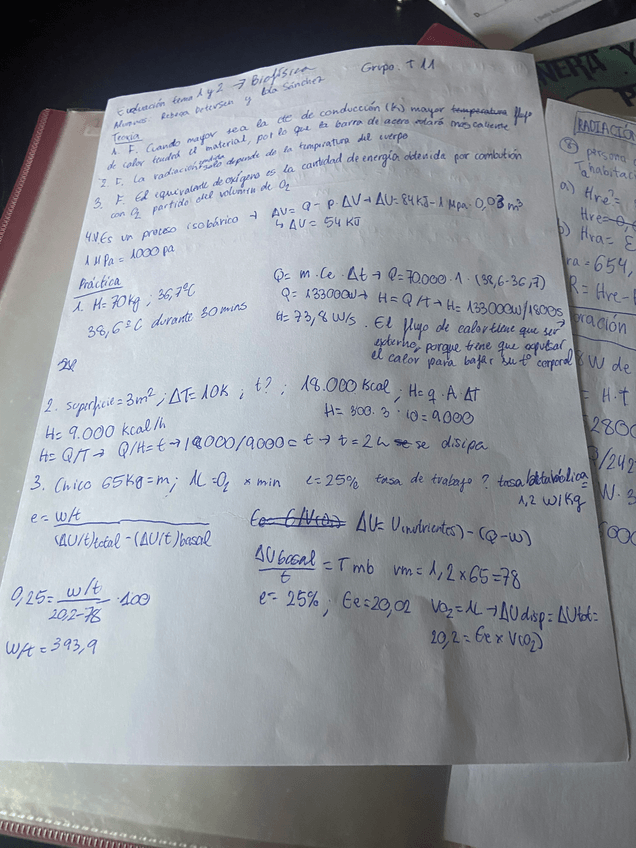 Evaluación tema 1 y 2 → Biofísica
Grupo: T 11
Alumnos: Rebeca Detersen y Ida Sánchez
Teoría
1. F. Cuando mayor sea la cte de conducción (k) mayor temperatura flujo
de calor tendrá el material, por lo que la barra de acero estará más caliente
2. F. La radiación emitida solo depende de la temperatura del cuerpo
3. F. El equivalente de oxígeno es la cantidad de energía obtenida por combustión
con O2 partido del volumen de O2
4. V Es un proceso isobárico → ΔU = Q - P. ΔV → ΔU = 84KJ - 1 Mpa. 0,03 m³
↳ ΔU = 54 KJ
1 MPa = 1000 pa
Práctica
1. H=70kg ; 36,7ºC
38,6ºC durante 30 mins
Q= m. Ce. Δt → Q=70.000. 1. (38,6-36,7)
Q= 133000W → H = Q/t → H= 133000W/1800s
H= 73,8 W/s. El flujo de calor tiene que ser
externo, porque tiene que expulsar
el calor para bajar su tº corporal
2. Superficie = 3m², ΔT = 10K , t? ; 18.000 Kcal , H=q. A. ΔT
H= 300. 3. 10 = 9.000
H= 9.000 kcal/h
H= Q/T → Q/H= t → 18000/9000 = t → t = 2h se se disipa
3. Chico 65Kg=m; 1L =O2 x min e=25% tasa de trabajo? tasa metabólica=
1,2 W/Kg
e= W/t
(ΔU/t)total - (ΔU/t)basal
ΔU= U(nutrientes) - (Q-W)
ΔU basal
t
= T mb vm = 1,2 x 65 = 78
e= 25% ; Ee=20,02 VO2=1L → ΔU disp = ΔUtot=
20,2 = Ee x V(O2)
0,25= W/t
20,2-78
. 100
W/t = 393,9
RADIACIÓN
8) persona
Tª habitaci
a) Hre
Hre=
b) Hra = E
ra = 654,
R = Hre-
oración
W de
= H.t
2800
3/242
W. 3
000